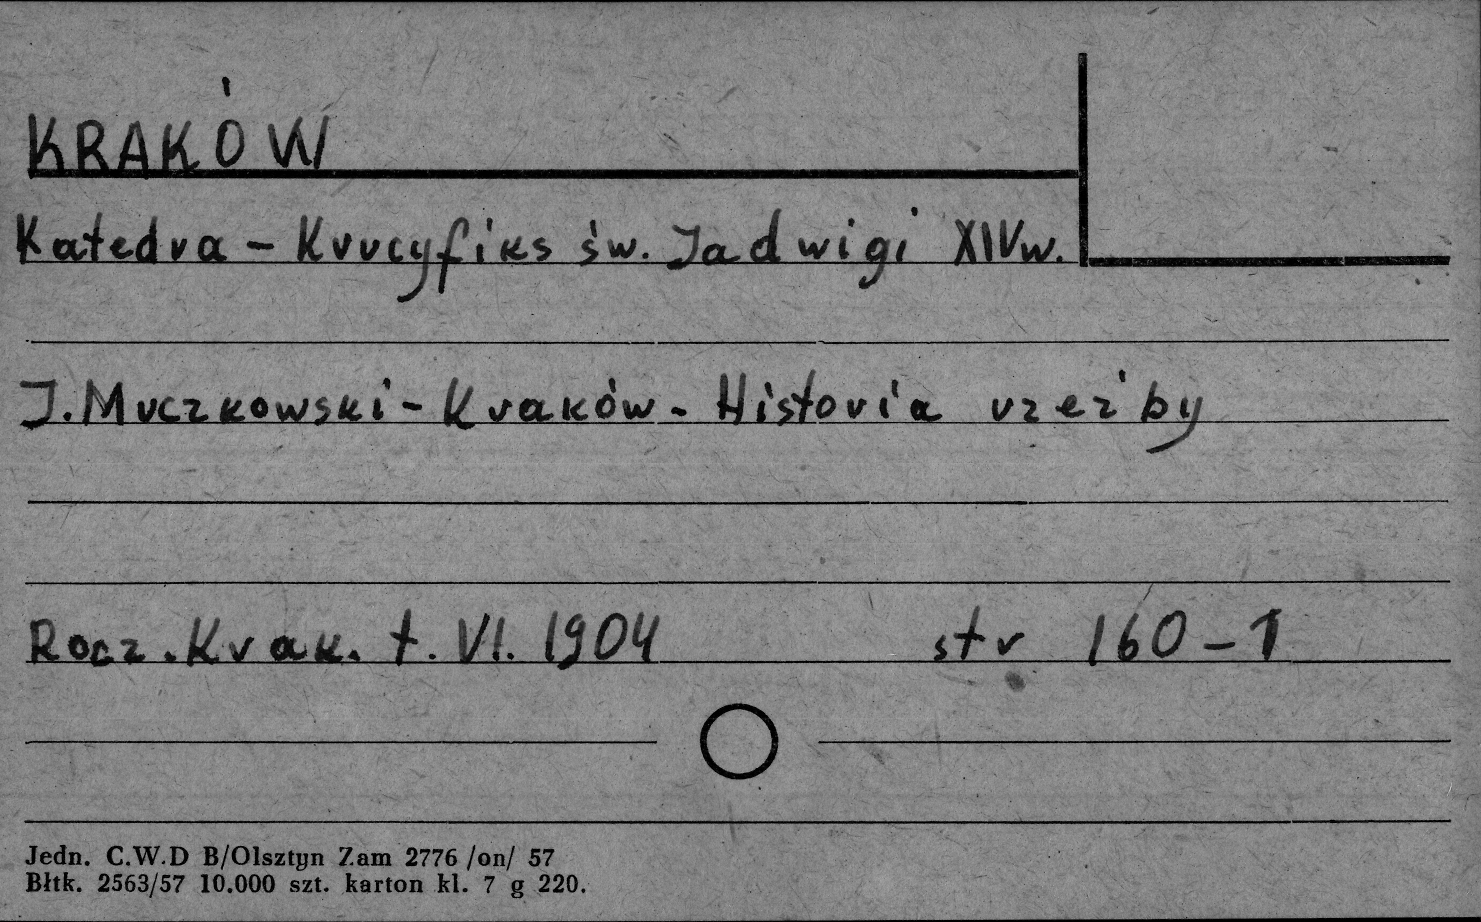 KRAKÓW
Katedra – Krucyfiks św. Jadwigi XIVw.
J. Muczkowski – Kraków – Historia rzeźby
Rocz. Krak. t. VI. 1904 str 160–1
Jedn. C.W.D B/Olsztyn Zam 2776 /on/ 57
Błtk. 2563/57 10.000 szt. karton kl. 7 g 220.